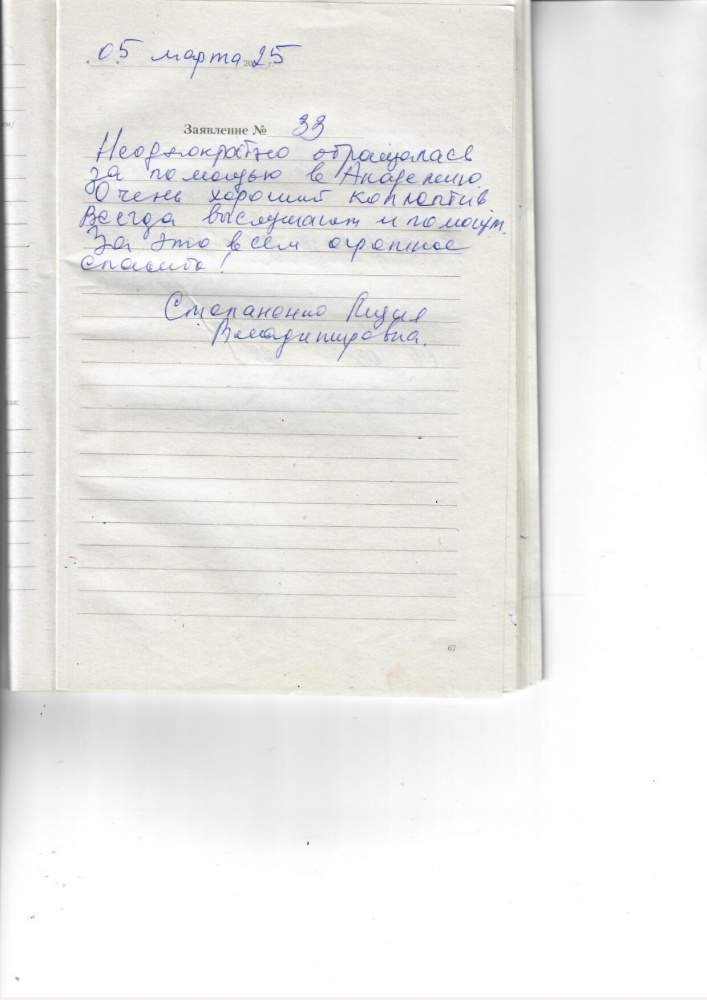 05 марта 2025
Заявление № 33
Неоднократно обращалась
за помощью в Академию
Очень хороший коллектив
Всегда выслушают и помогут.
За это всем огромное
спасибо!
Степаненко Лидия
Владимировна.
67